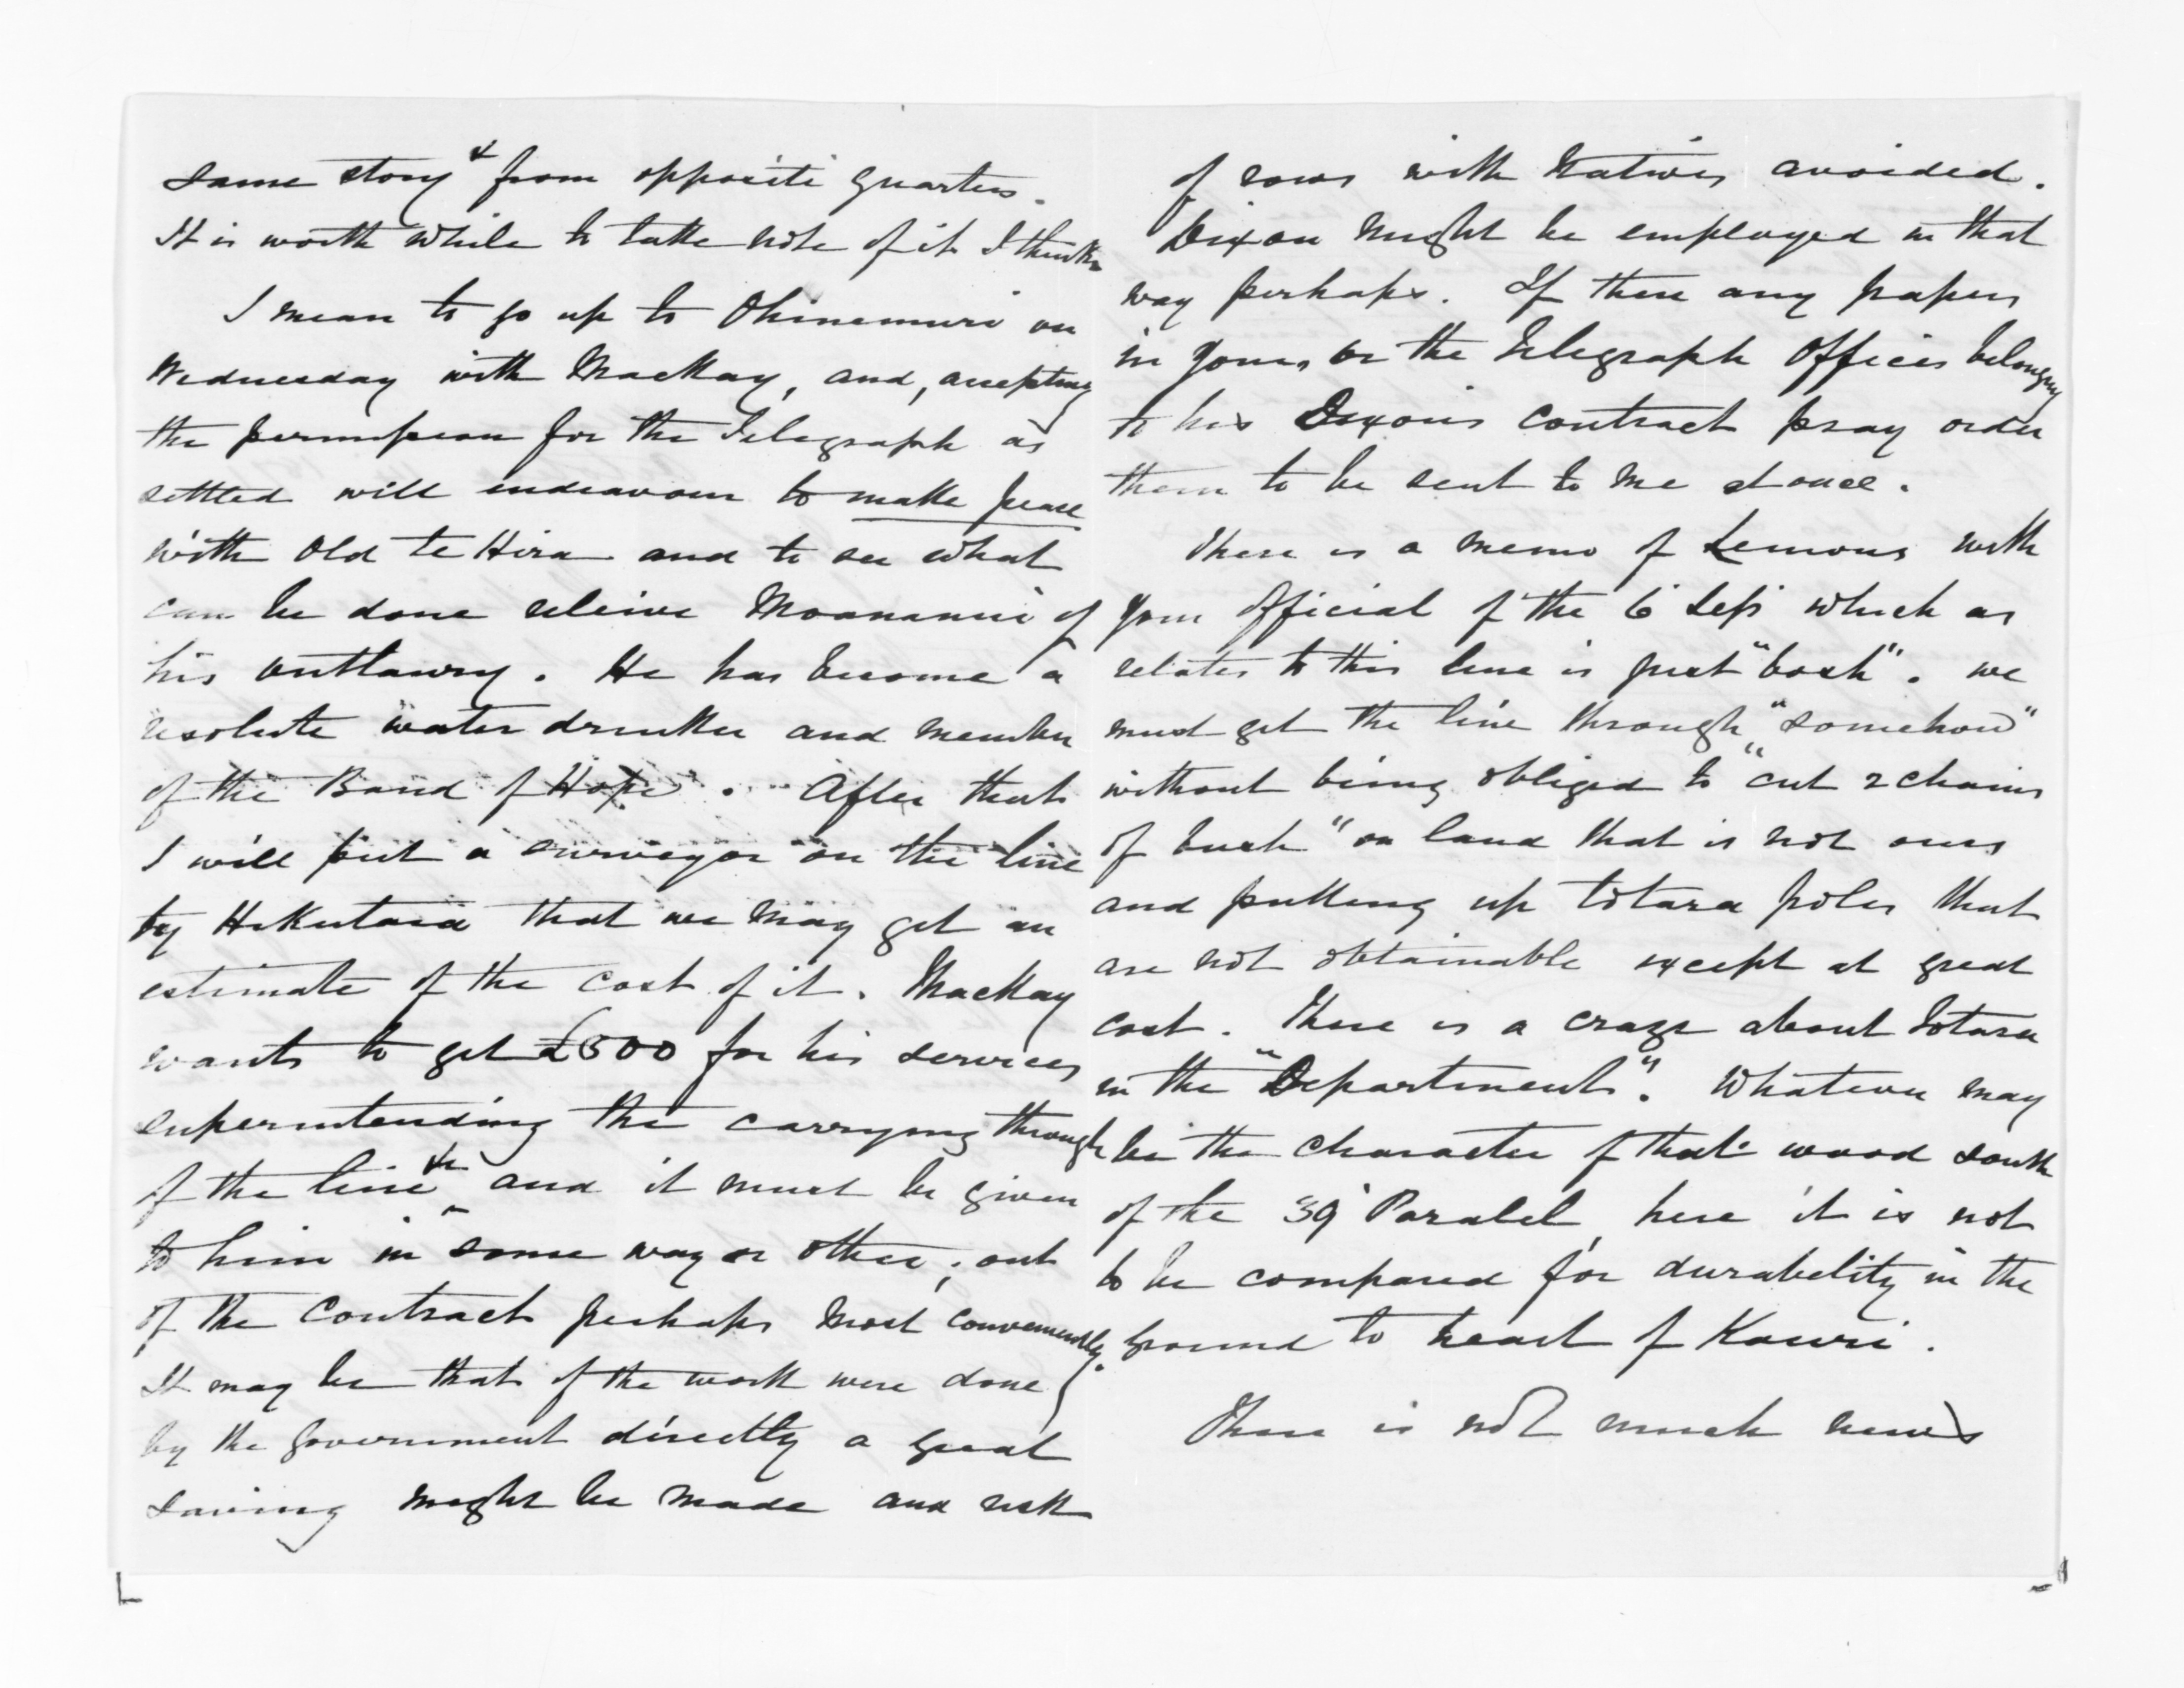 same story & from opposite quarters.
It is worth while to take note of it I think
I mean to go up to Ohinemuri on
Wednesday with Mackay, and, accepting
the permission for the Telegraph as
settled will endeavour to make peace
with Old te Hira and to see what
can be done releive Moananui of
his outlawry. He has become a
resolute water drinker and member
of the Band of Hope. After that
I will put a surveyor on the line
by Hikutaia that we may get an
estimate of the cost of it. Mackay
wants to get £500 for his services
superintending the carrying through
of the line &c and it must be given
to him in some way or other; out
of the contract perhaps most conveniently.
It may be that if the work were done
by the Government directly a great
saving might be made and risk
of rows with Natives avoided.
Dixon might be employed in that
way perhaps. If there any papers
in Your, or the Telegraph Offices belonging
to his Dixon's contract pray order
them to be sent to me at once.
There is a memo of Lemons with
Your Official of the 6 Sep which as
relates to this line is just "bosh". We
must get the line through "somehow"
without being obliged to "cut 2 chains
of bush" on land that is not ours
and putting up totara poles that
are not obtainable except at great
cost. There is a craze about Totara
in the "Department". Whatever may
be the character of that wood south
of the 39 Paralel, here it is not
to be compared for durability in the
ground to heart of Kauri.
There is not much news